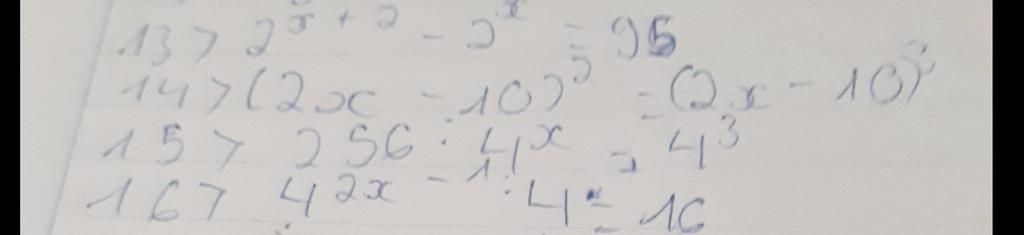 13> 2^x + 2 - 2^x = 96
14> (2x - 10)^5 = (2x - 10)^3
15> 256 : 4^x = 4^3
16> 4^2x - 1 : 4 = 16